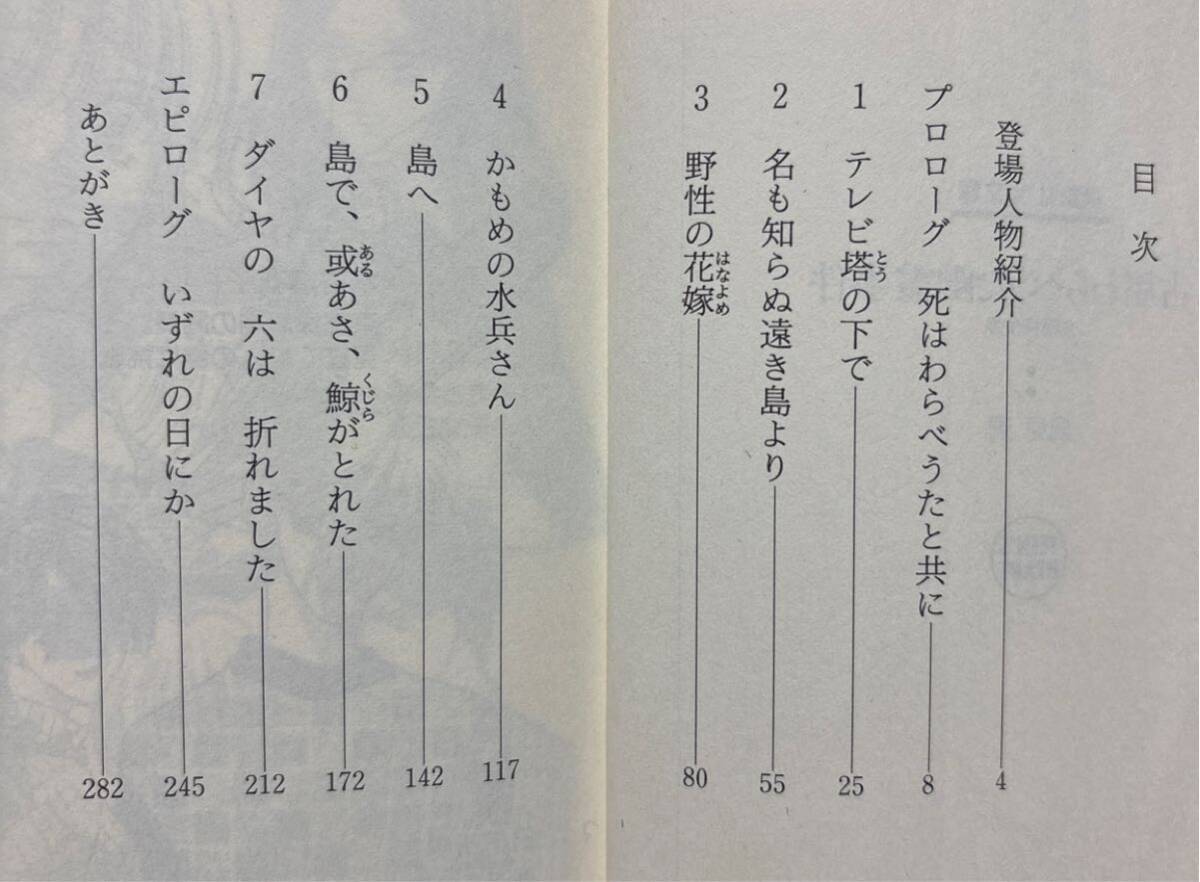 目次
登場人物紹介 4
プロローグ 死はわらべうたと共に 8
1 テレビ塔の下で 25
2 名も知らぬ遠き島より 55
3 野性の花嫁 80
4 かもめの水兵さん 117
5 島へ 142
6 島で、或あさ、鯨がとれた 172
7 ダイヤの 六は 折れました 212
エピローグ いずれの日にか 245
あとがき 282